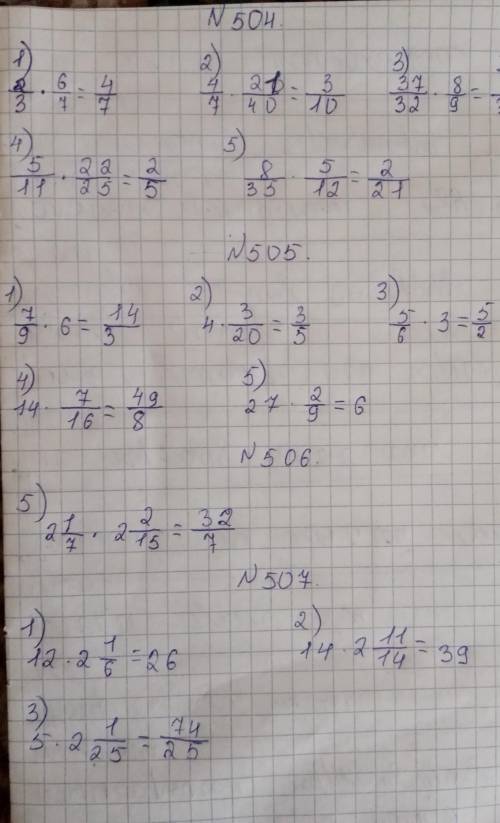 N504.
1) 2/3 · 6/7 = 4/7 2) 4/7 · 21/40 = 3/10 3) 37/32 · 8/9 =
4) 5/11 · 22/25 = 2/5 5) 8/35 · 5/12 = 2/21
N505.
1) 7/9 · 6 = 14/3 2) 4 · 3/20 = 3/5 3) 5/6 · 3 = 5/2
4) 14 · 7/16 = 49/8 5) 27 · 2/9 = 6
N506.
5) 2 1/7 · 2 2/15 = 32/7
N507.
1) 12 · 2 1/6 = 26 2) 14 · 2 11/14 = 39
3) 5 · 2 1/25 = 74/25